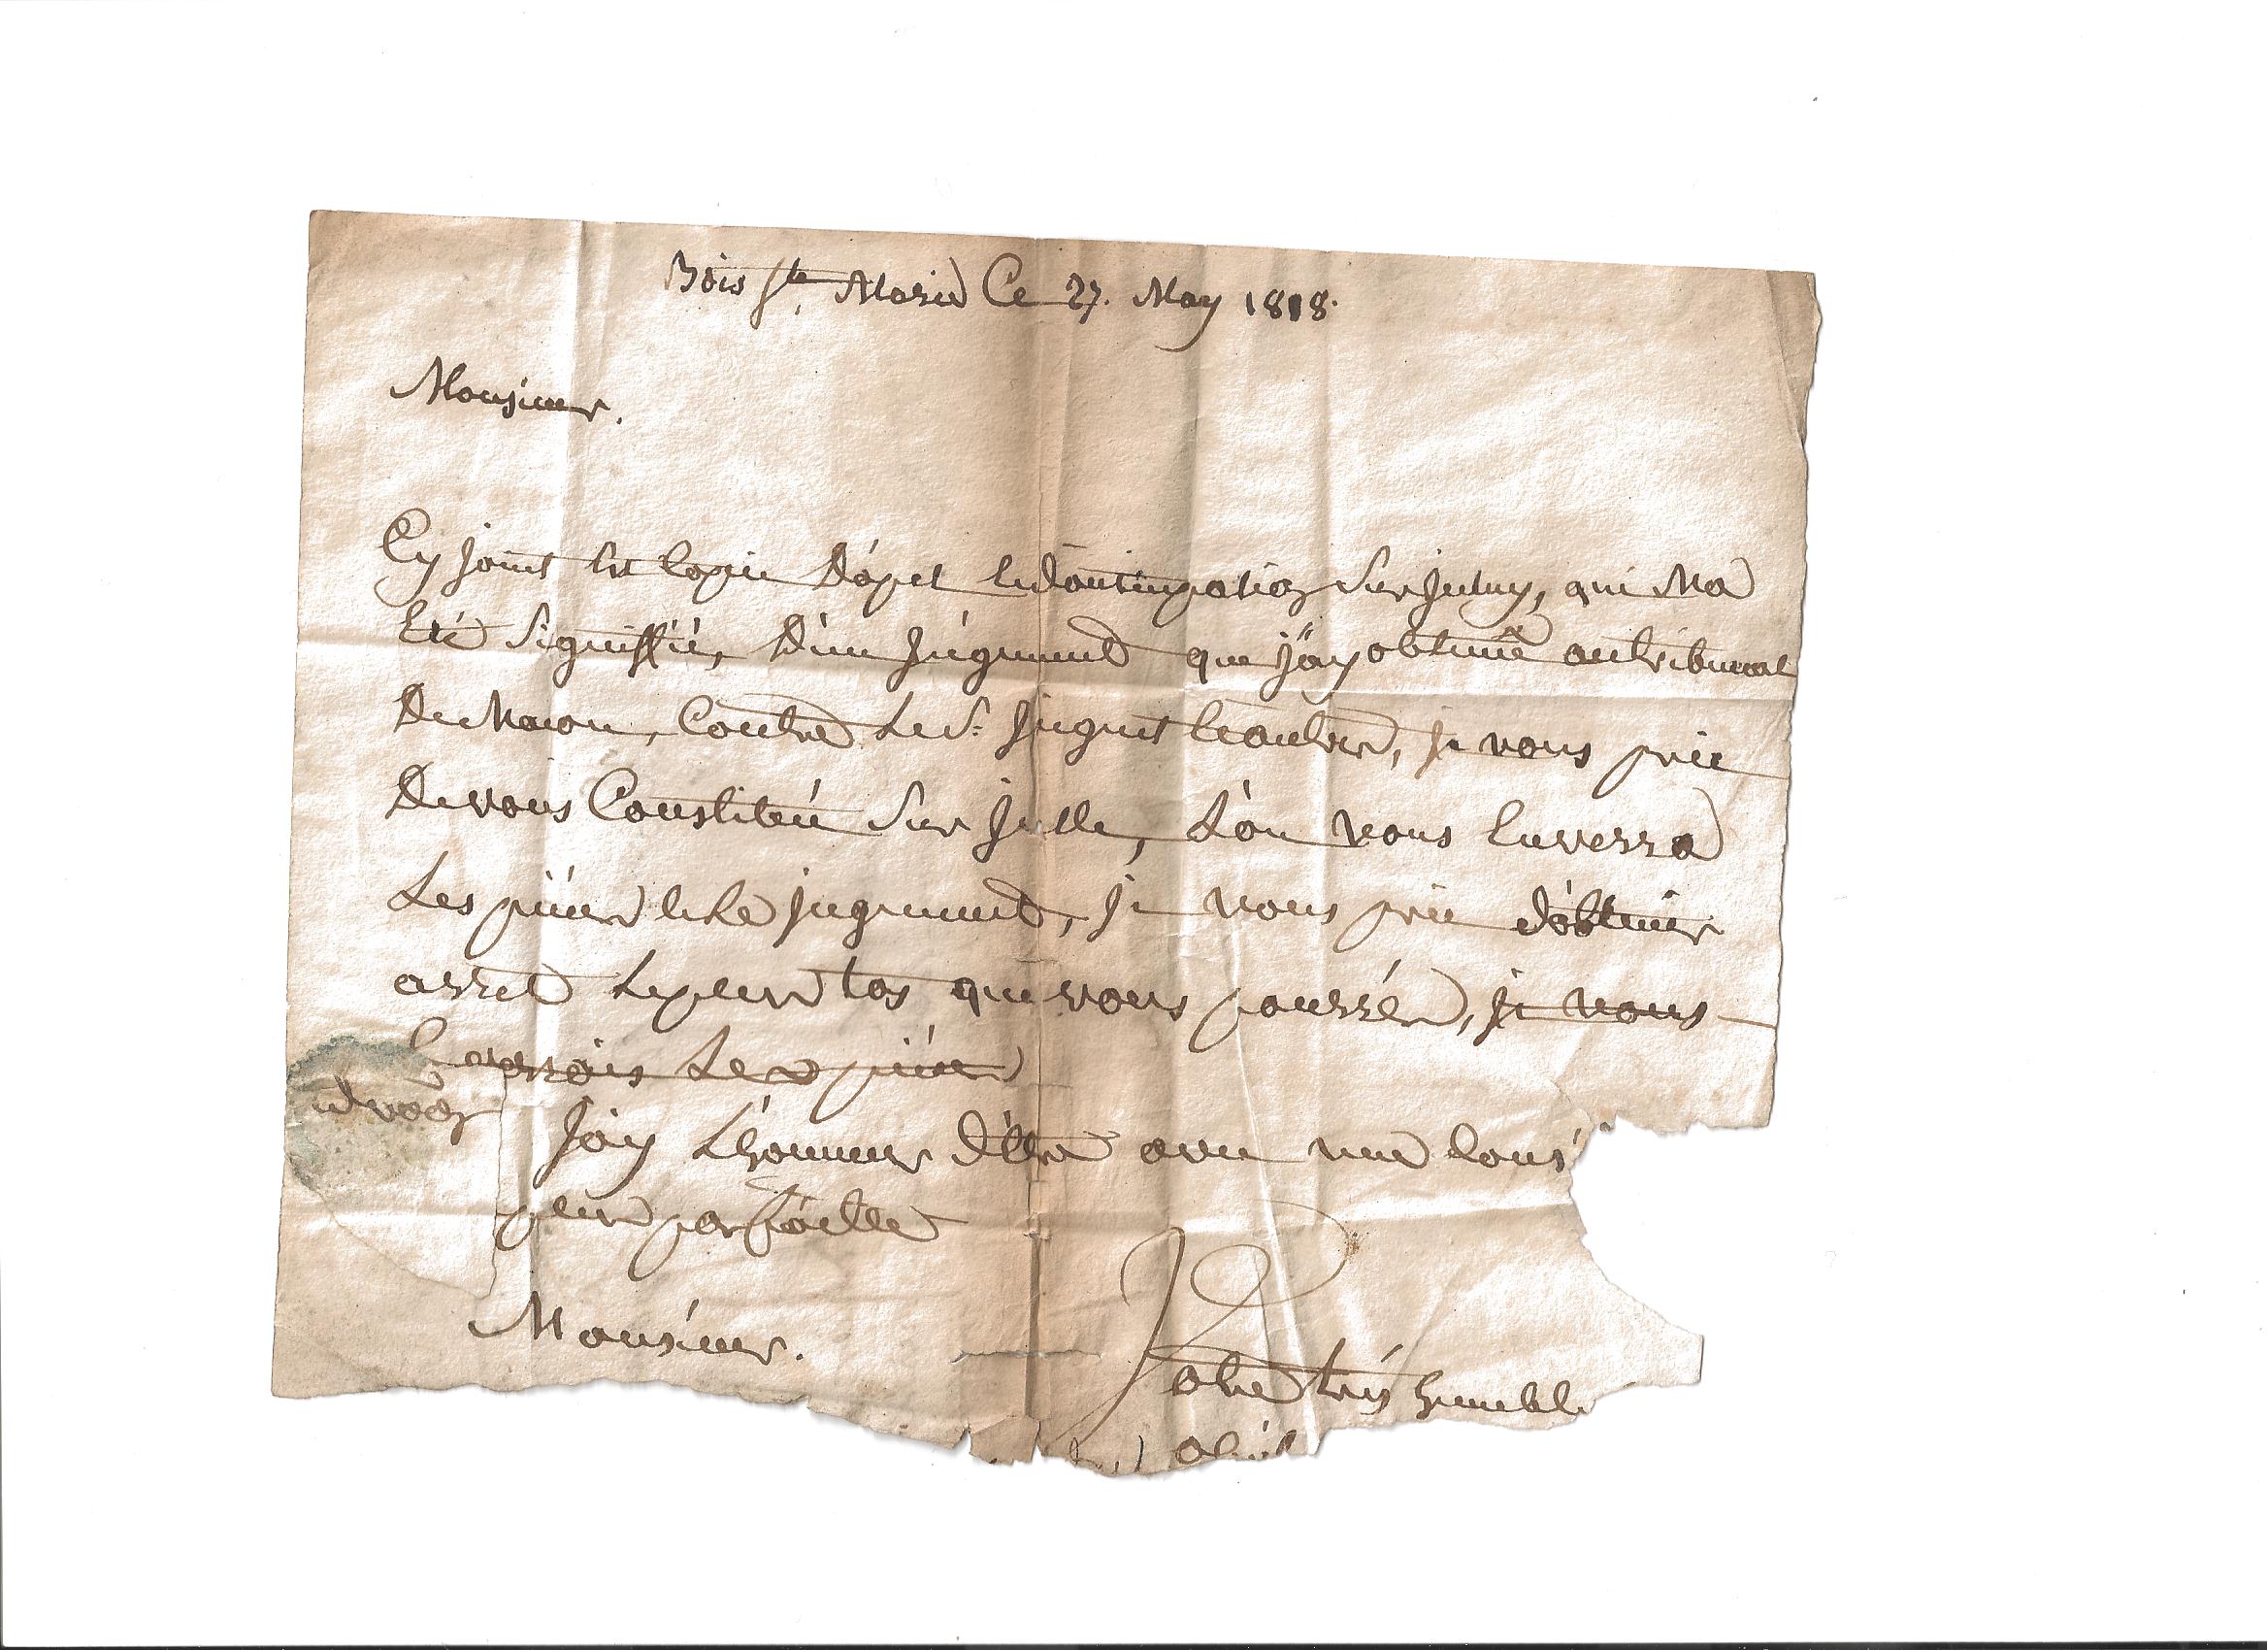 Bois Ste Marie Ce 27. May 1818.
Monsieur.
Cy joint la Copie D'apel et d'anticipation Sur Jceluy, qui Ma
Eté Signiffié, D'un Jugement que j'ay obtenue au tribunal
De Macon, Contre Le Sr. Juguet Et autre, Je vous prie
De vous Constitué Sur Jcelle, L'on vous Enverra
Les pièce et Le jugement, Je vous prie d'obtenir
arret Le plus tos que vous pourrée, je vous
Enverrois Les pièce
J'ay L'honneur D'être avec une Consi
plus parfaitte
Monsieur.
Votre très humbl
obéis